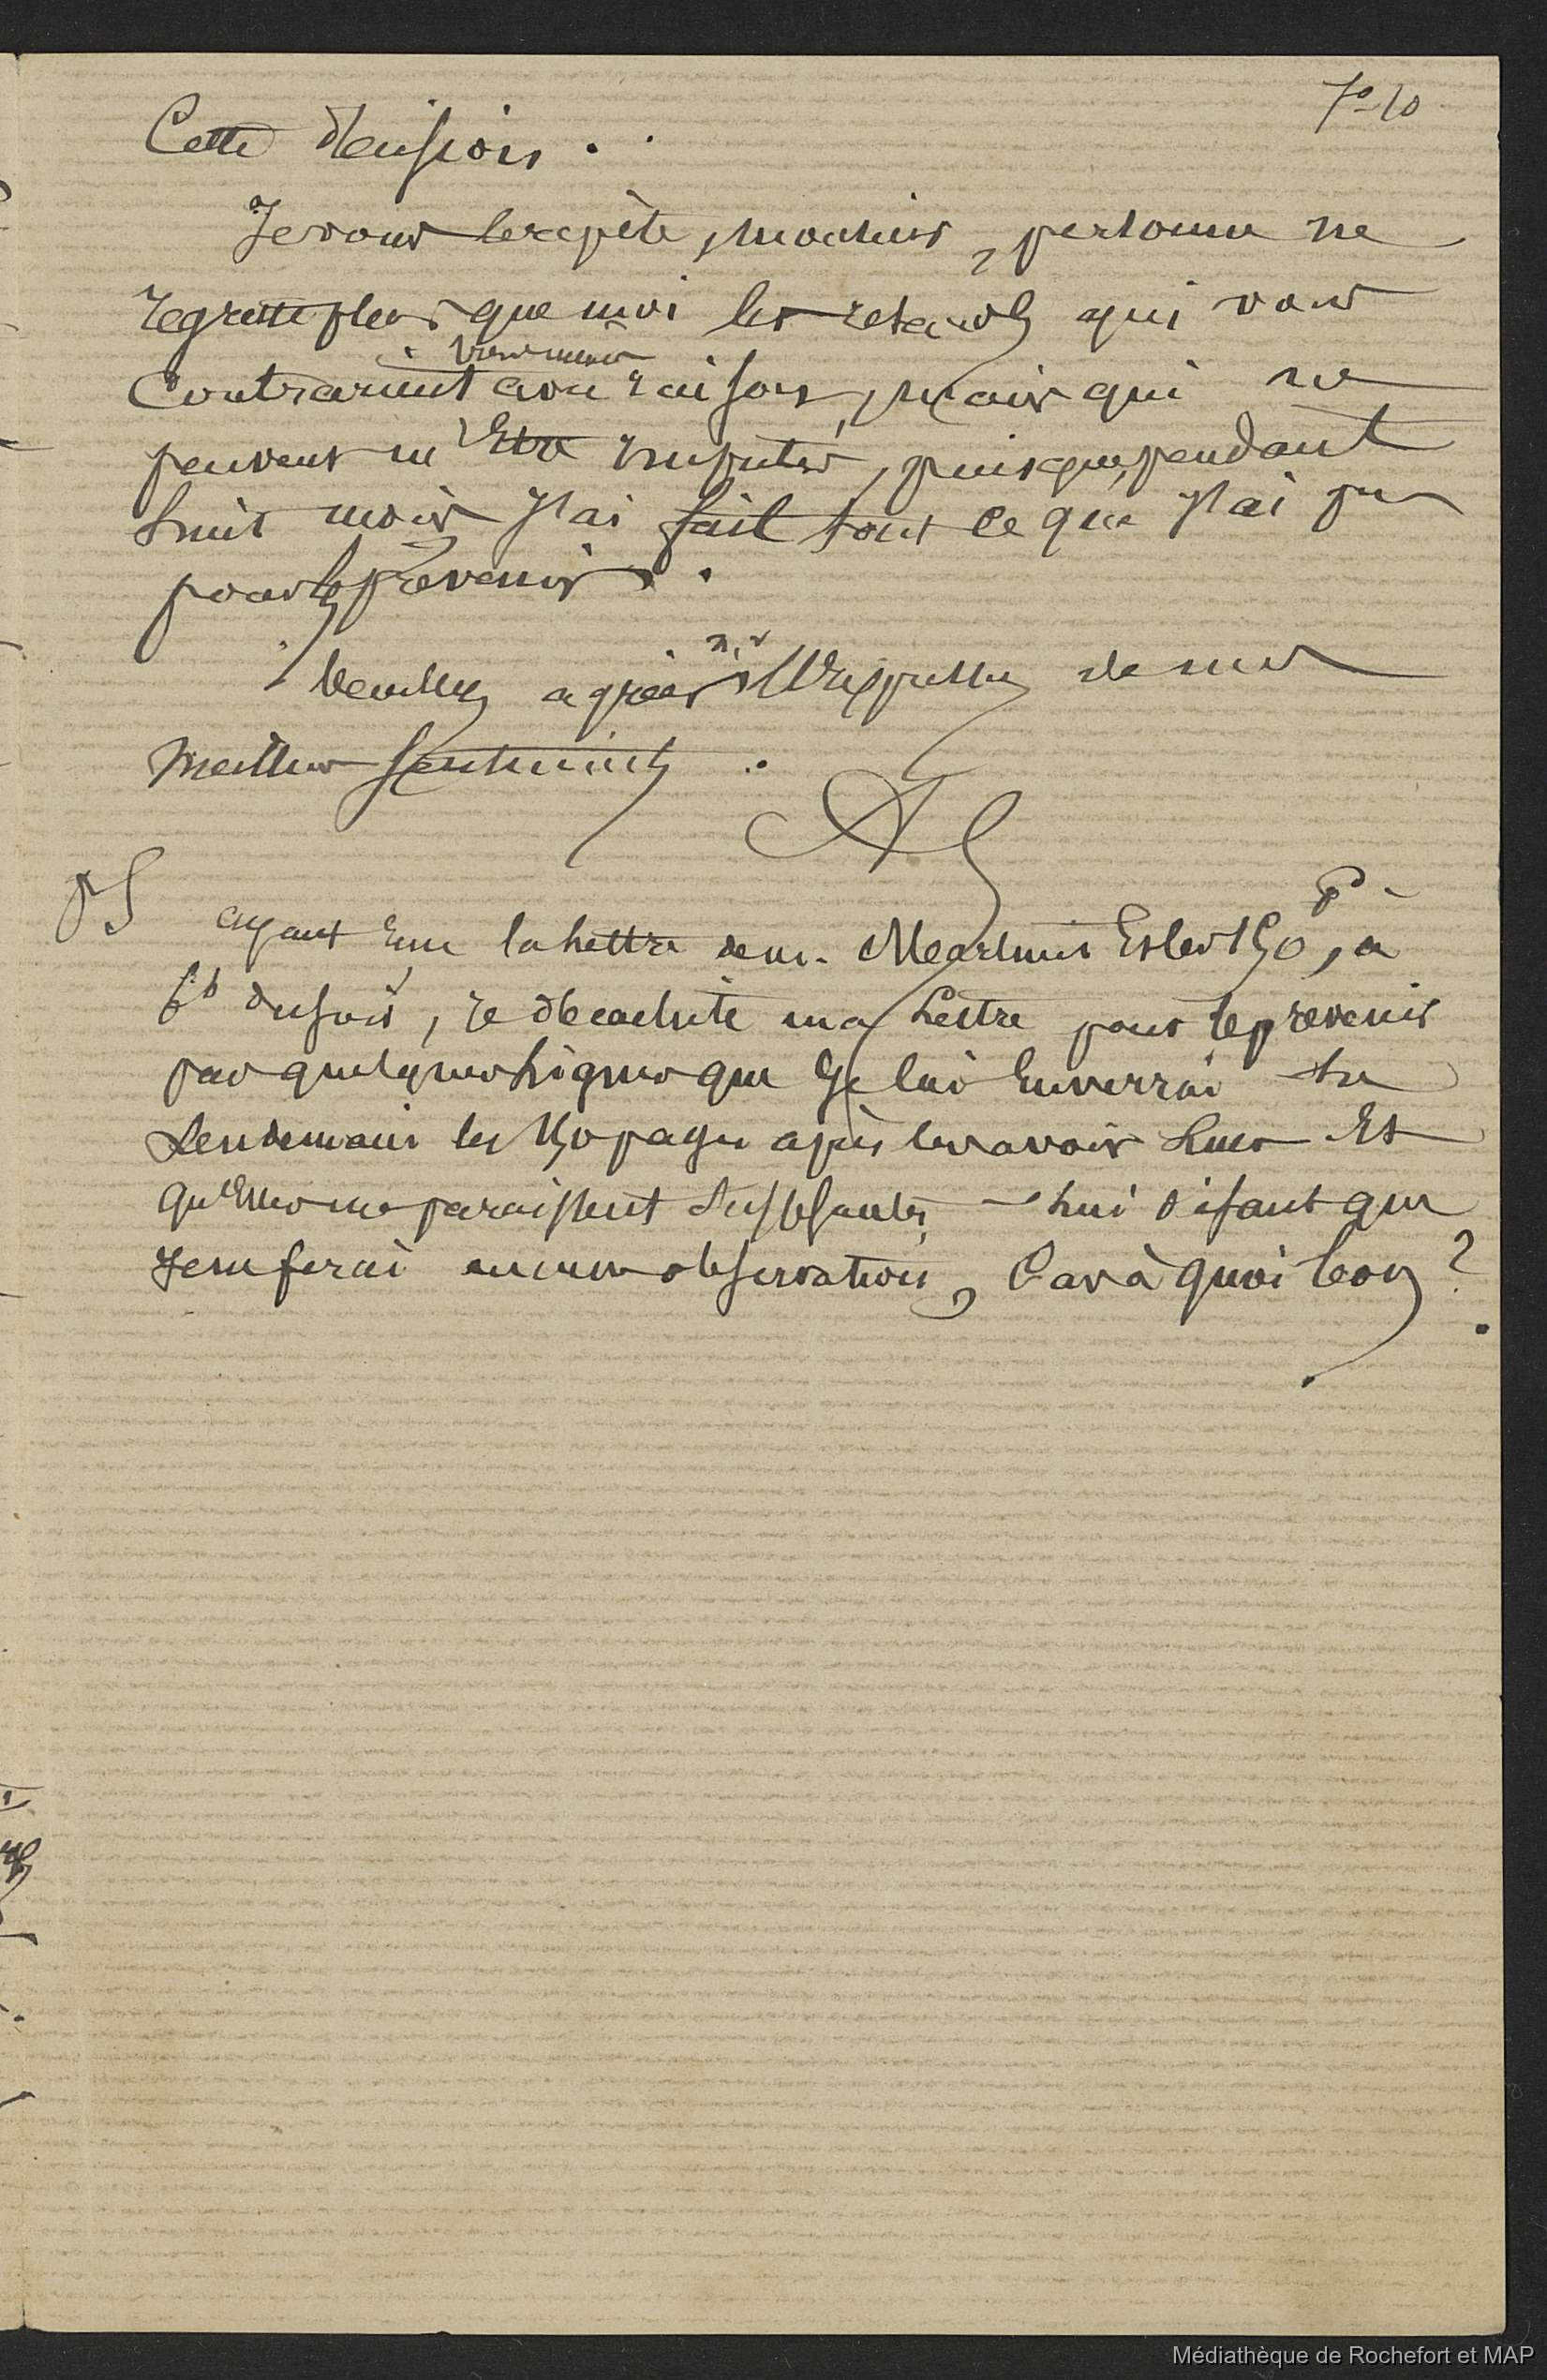 7-10
Cette décision.
Je vous le répète, monsieur, personne ne
regrette plus que moi les retards qui vous
vous même
contrarient avec raison, mais qui ne
peuvent m'être imputés, puisque, pendant
huit mois j'ai fait tout ce que j'ai pu
pour les prévenir.
Veuillez agréer Mr l'expression de mes
meilleurs sentiments.
PS ayant eu la lettre de M. Martinet et les 150 p., à
6h du soir, je décachète ma lettre pour le prévenir
par quelques lignes que je lui enverrai le
lendemain les 150 pages après les avoir lues et
qu'elles me paraissent suffisantes, lui disant que
je ne ferai aucune observation, car à quoi bon ?
Médiathèque de Rochefort et MAP